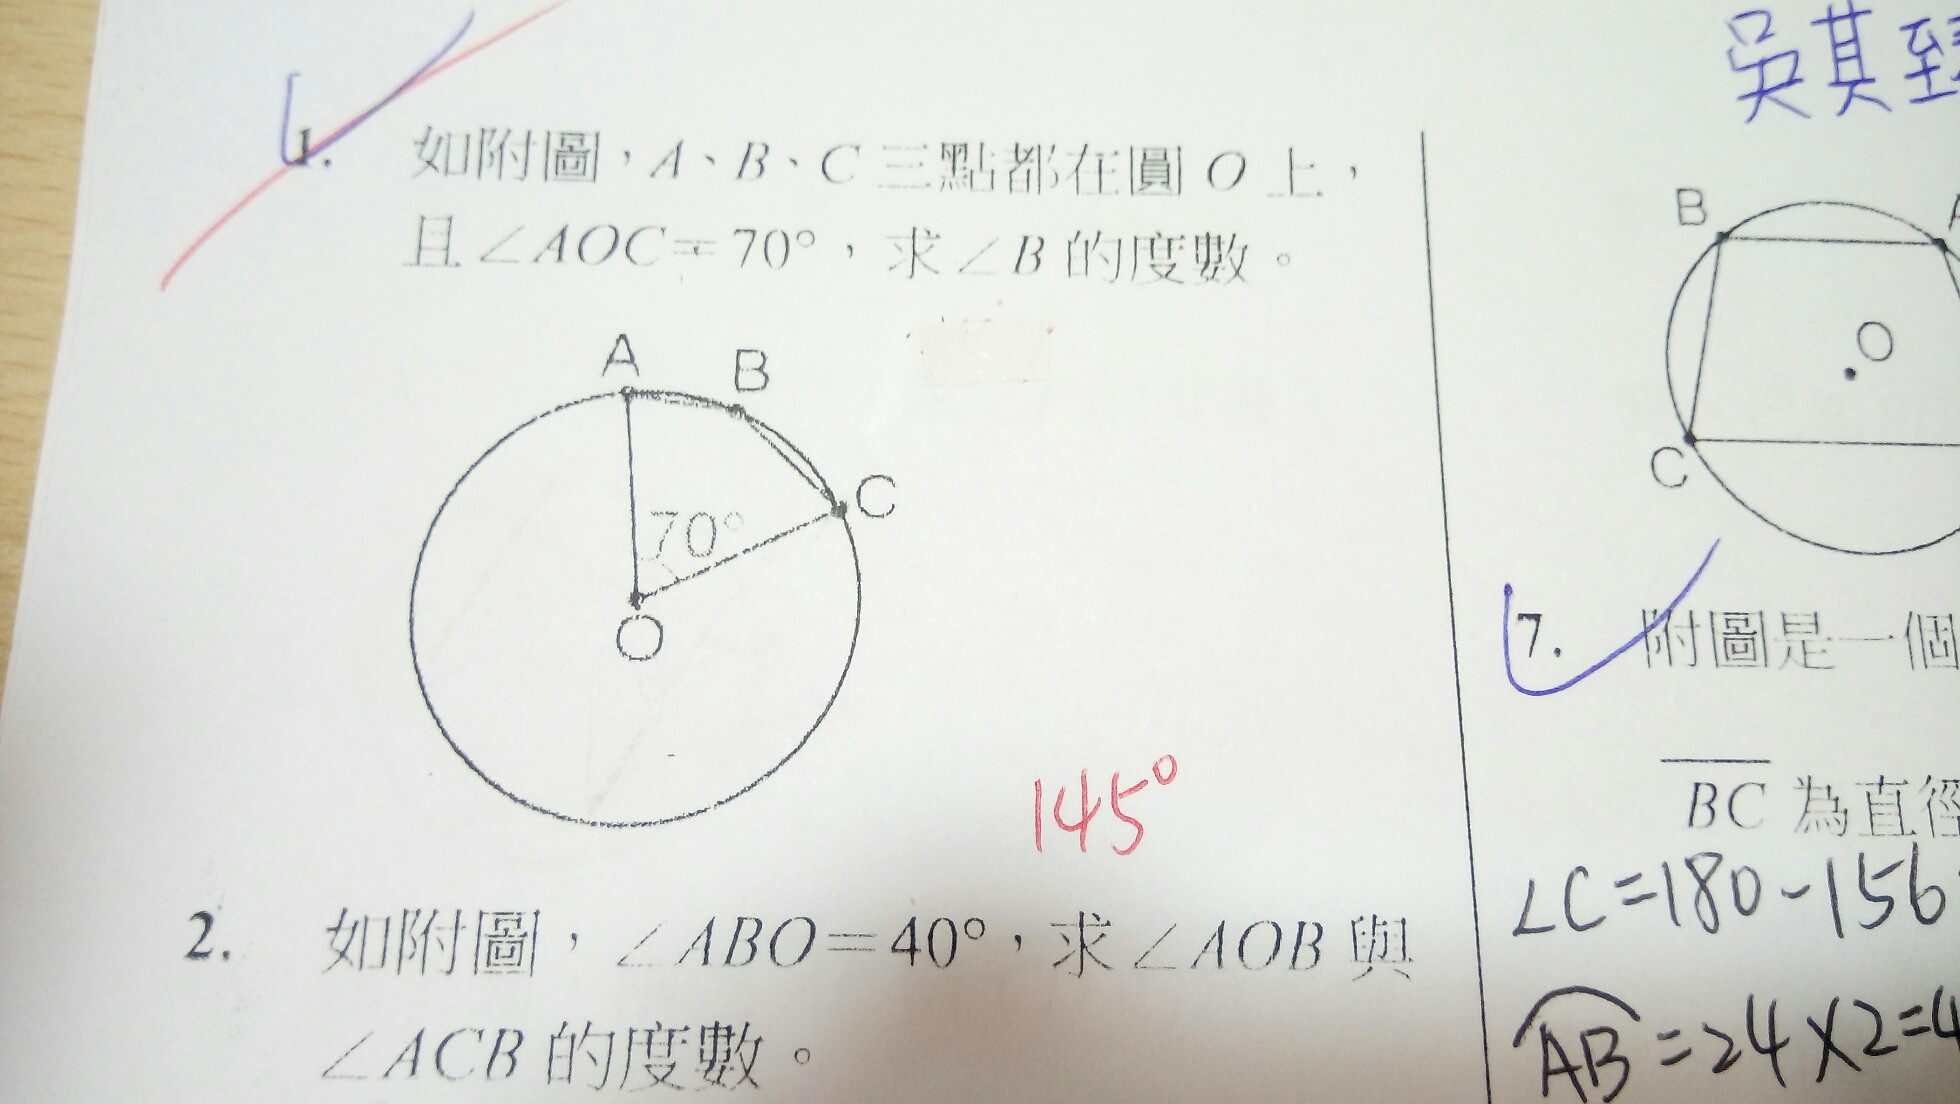 1. 如附圖，A、B、C 三點都在圓 O 上，
且∠AOC=70°，求∠B 的度數。
A
B
C
70°
O
145°
2. 如附圖，∠ABO=40°，求∠AOB 與
∠ACB 的度數。
吳其
B
O
C
7. 附圖是一個
BC 為直徑
∠C=180-156
AB=24×2=4